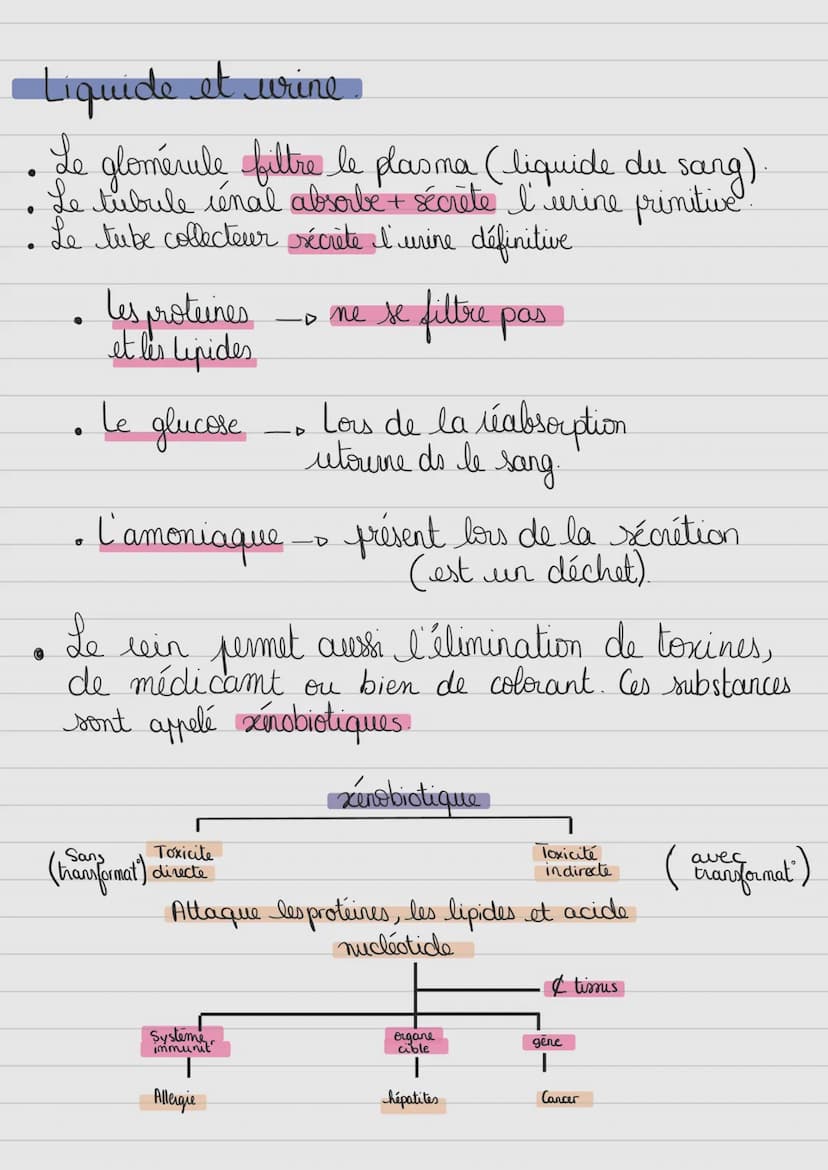 Liquide et urine.
. Le glomérule filtre le plasma (liquide du sang).
. Le tubule rénal absorbe + sécrète l'urine primitive.
. Le tube collecteur sécrète l'urine définitive
. Les proteines → ne se filtre pas
et les lipides
. Le glucose → Lors de la réabsorption
retourne ds le sang.
. L'amoniaque → présent lors de la sécrétion
(est un déchet).
. Le rein permet aussi l'élimination de toxines,
de médicamt ou bien de colorant. Ces substances
sont appelé xénobiotiques.
xénobiotique
(Sans transformat°) Toxicite directe
Toxicité indirecte (avec transformat°)
Attaque les protéines, les lipides et acide
nucléotide
¢ tissus
Système immunit. organe cible gène
Allergie hépatites Cancer